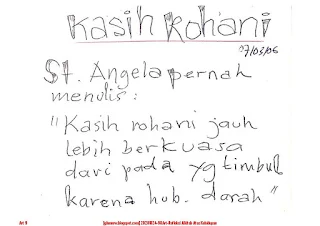 Kasih Rohani
07/03/06
St. Angela pernah
menulis :
"Kasih rohani jauh
lebih berkuasa
dari pada yg timbul
karena hub. darah"